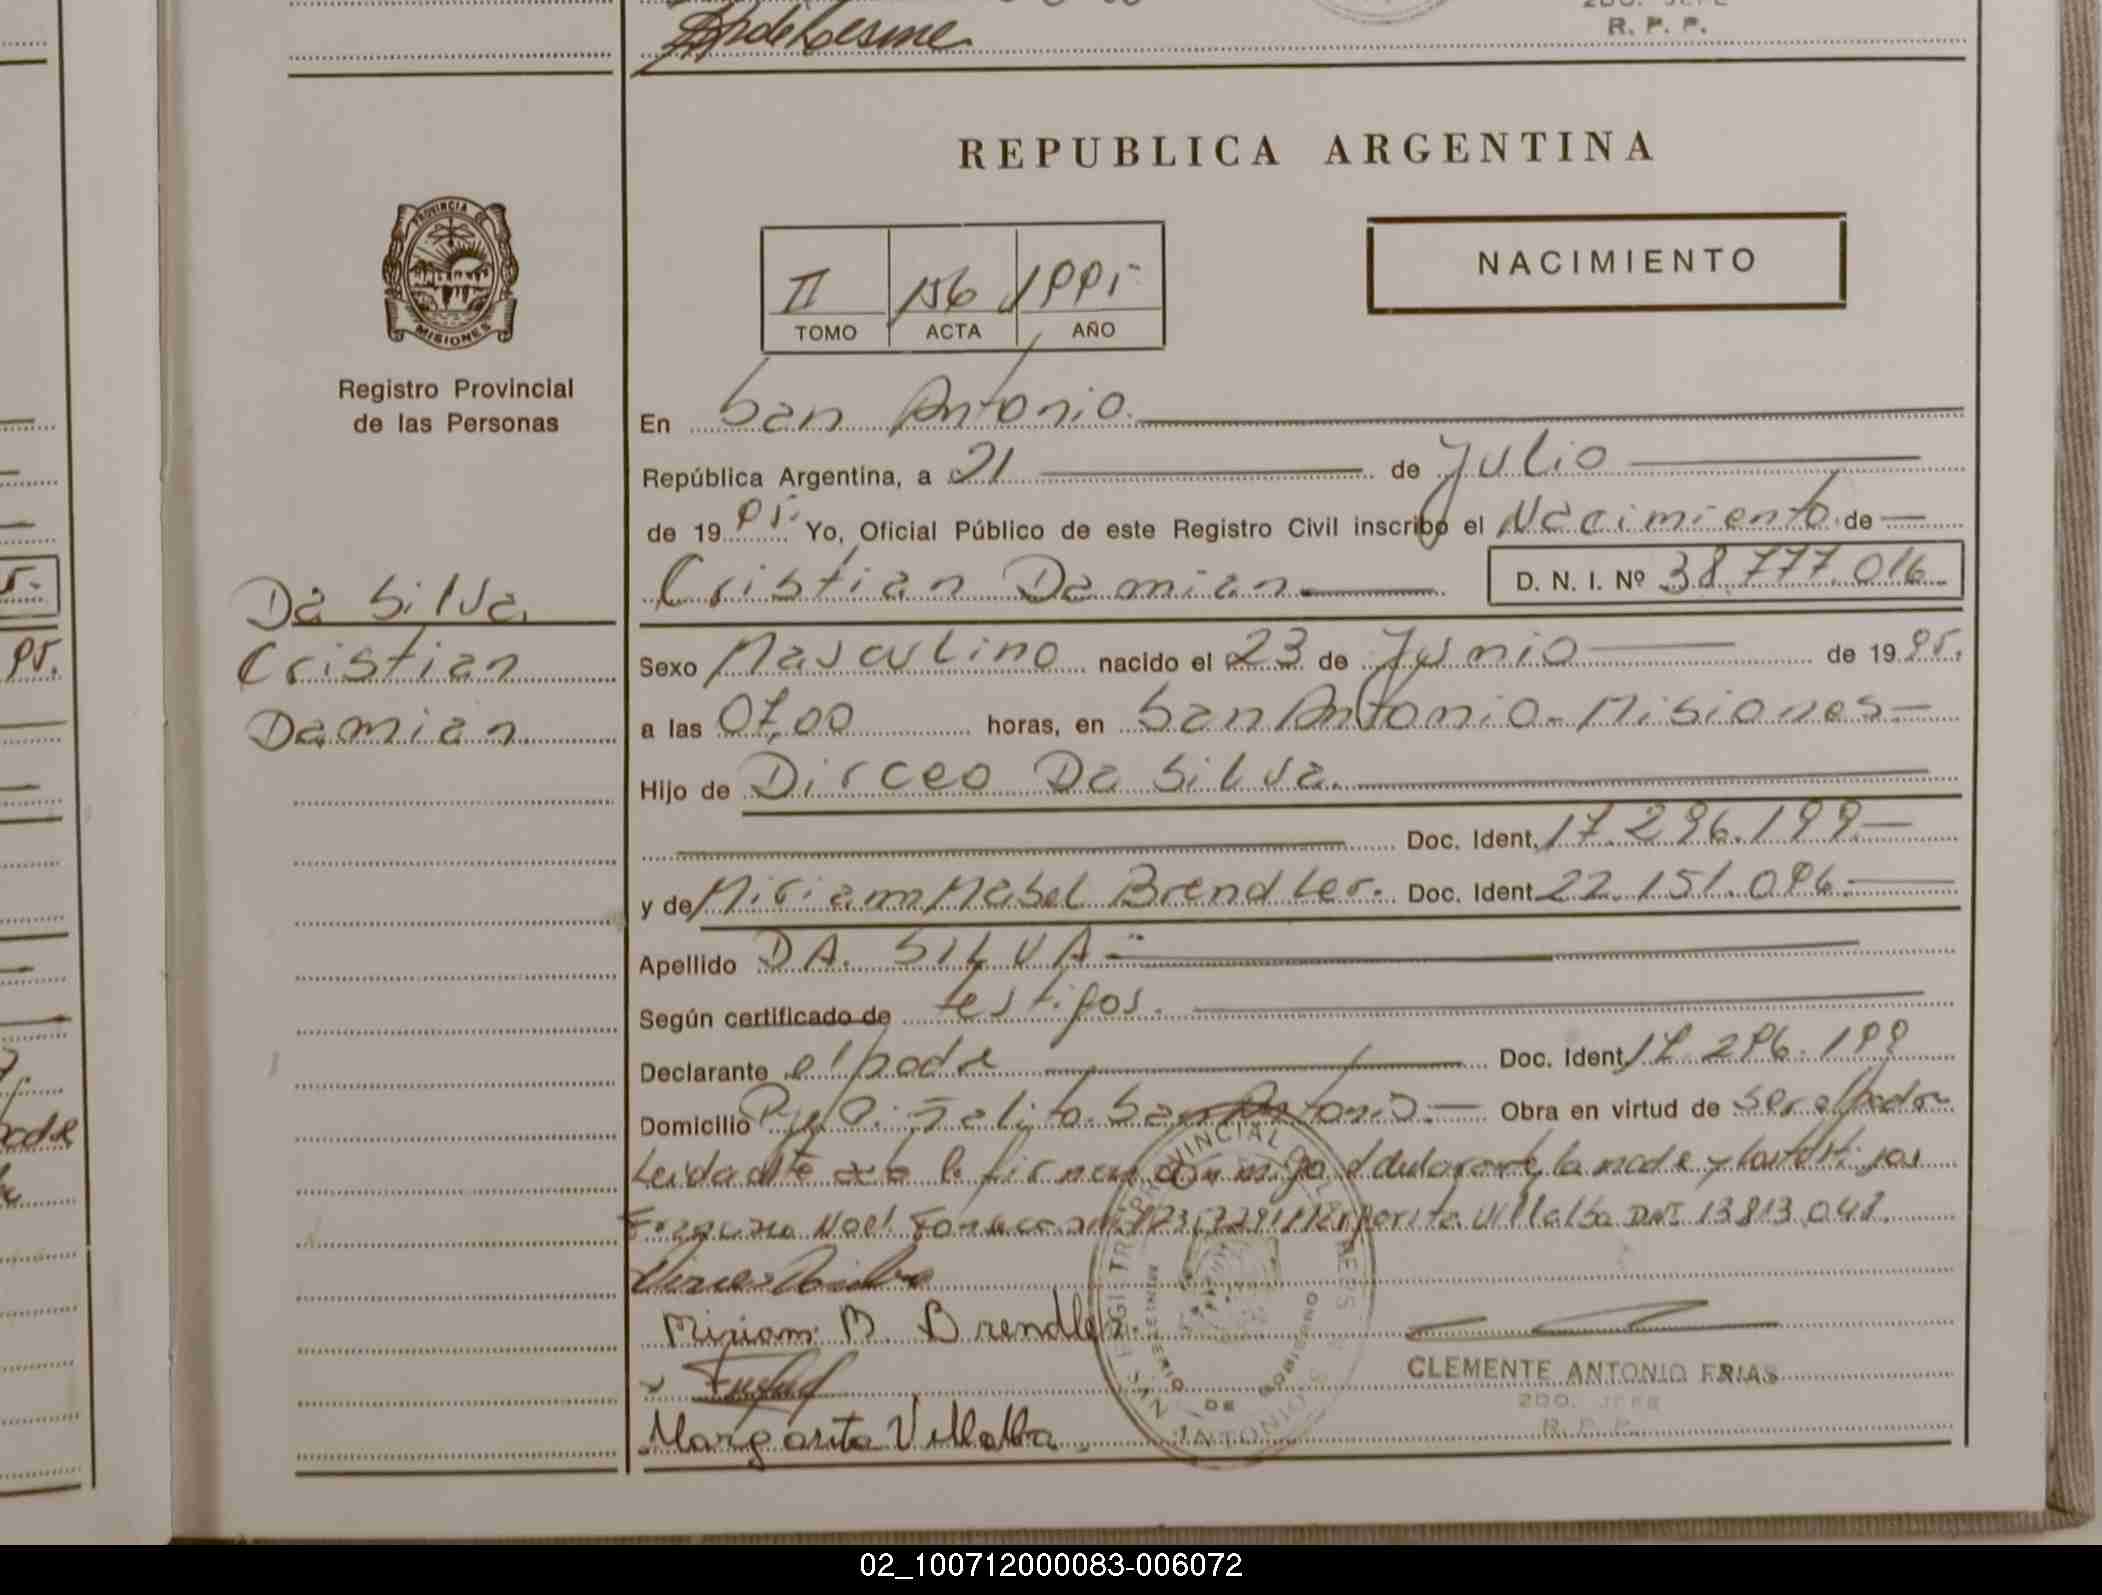 R. P. P.
REPUBLICA ARGENTINA
PROVINCIA DE
MISIONES
Registro Provincial
de las Personas
NACIMIENTO
II 156 1995
TOMO ACTA AÑO
En San Antonio.
República Argentina, a 21 de Julio
de 1995. Yo, Oficial Público de este Registro Civil inscribo el Nacimiento de
Cristian Damian D. N. I. Nº 38.777.016
Da Silva
Cristian
Damian
Sexo Masculino nacido el 23 de Junio de 1995.
a las 07,00 horas, en San Antonio - Misiones
Hijo de Dirceo Da Silva.
Doc. Ident. 17.296.199
y de Miriam Mabel Brendler. Doc. Ident. 22.151.096
Apellido DA SILVA
Según certificado de testigos.
Declarante el padre Doc. Ident. 17.296.199
Domicilio San Antonio Obra en virtud de ser el padre
Leida el acta la firman conmigo el declarante, la madre y los testigos
Noel Margarita Villalba DNI 13.813.048.
Miriam M. Brendler.
CLEMENTE ANTONIO FRIAS
2DO. JEFE
R. P. P.
Margarita Villalba
02_100712000083-006072